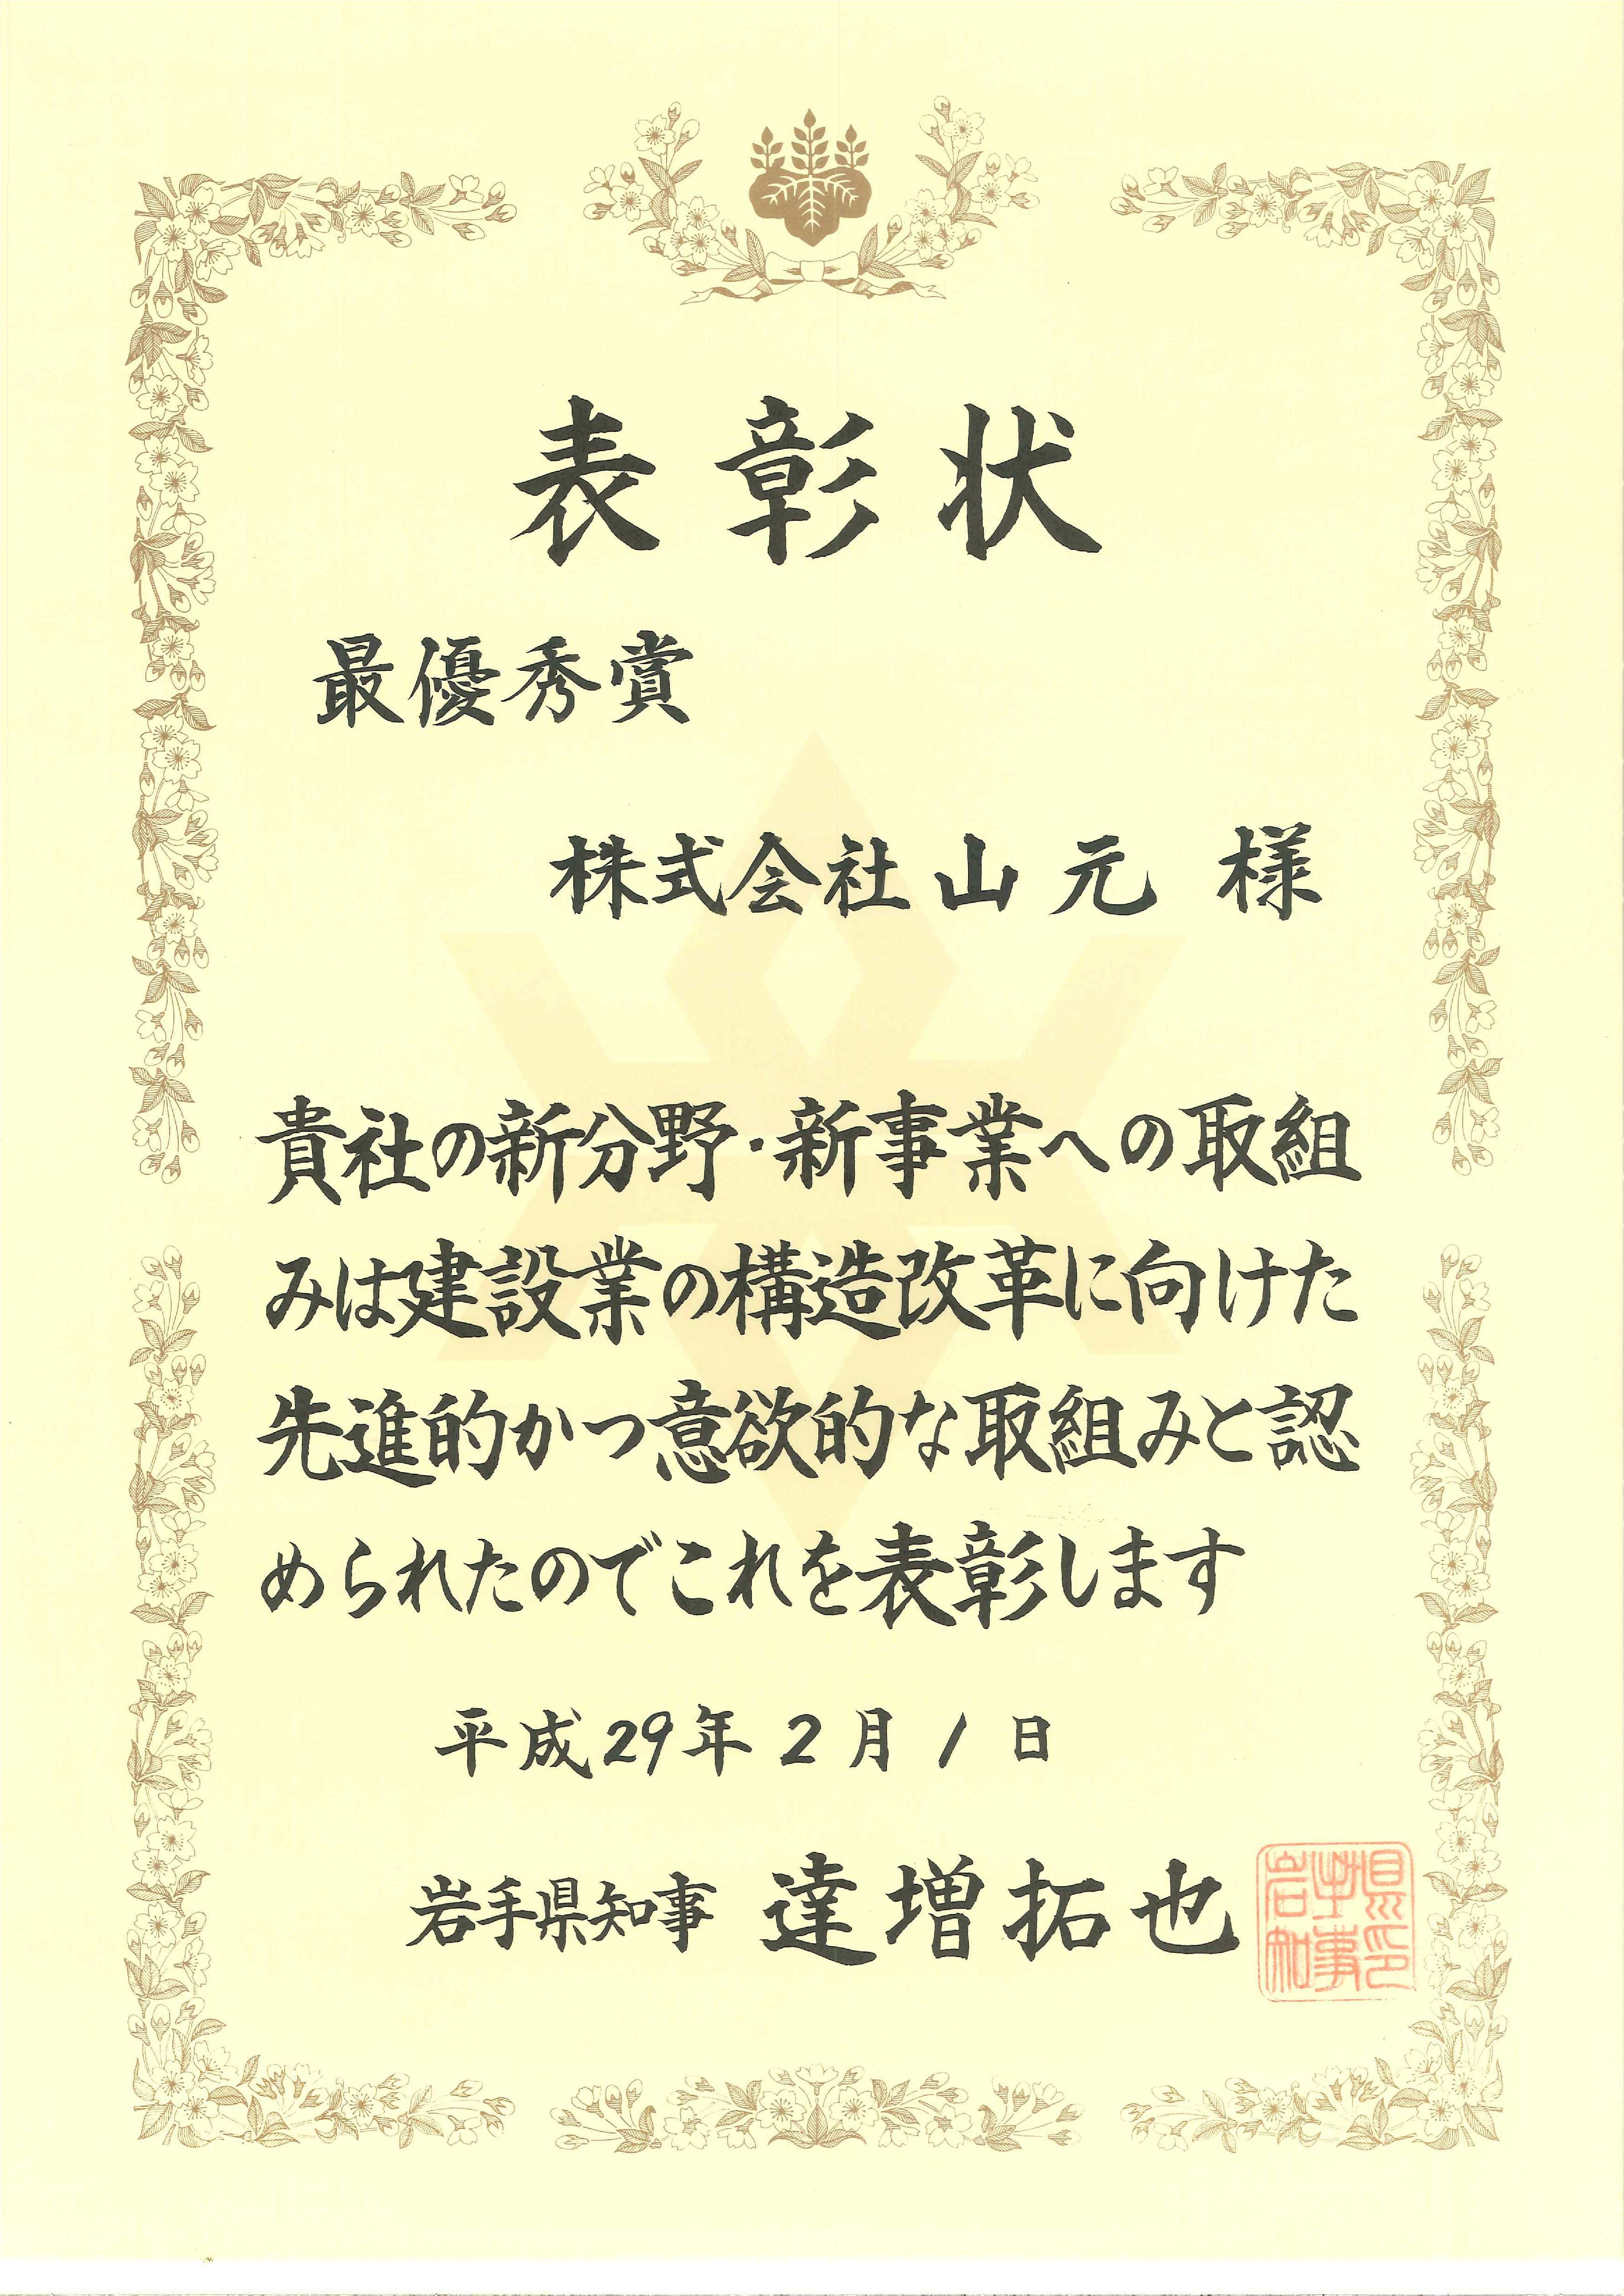 表彰状
最優秀賞
株式会社山元 様
貴社の新分野・新事業への取組
みは建設業の構造改革に向けた
先進的かつ意欲的な取組みと認
められたのでこれを表彰します
平成29年2月1日
岩手県知事 達増拓也
岩手県知事印